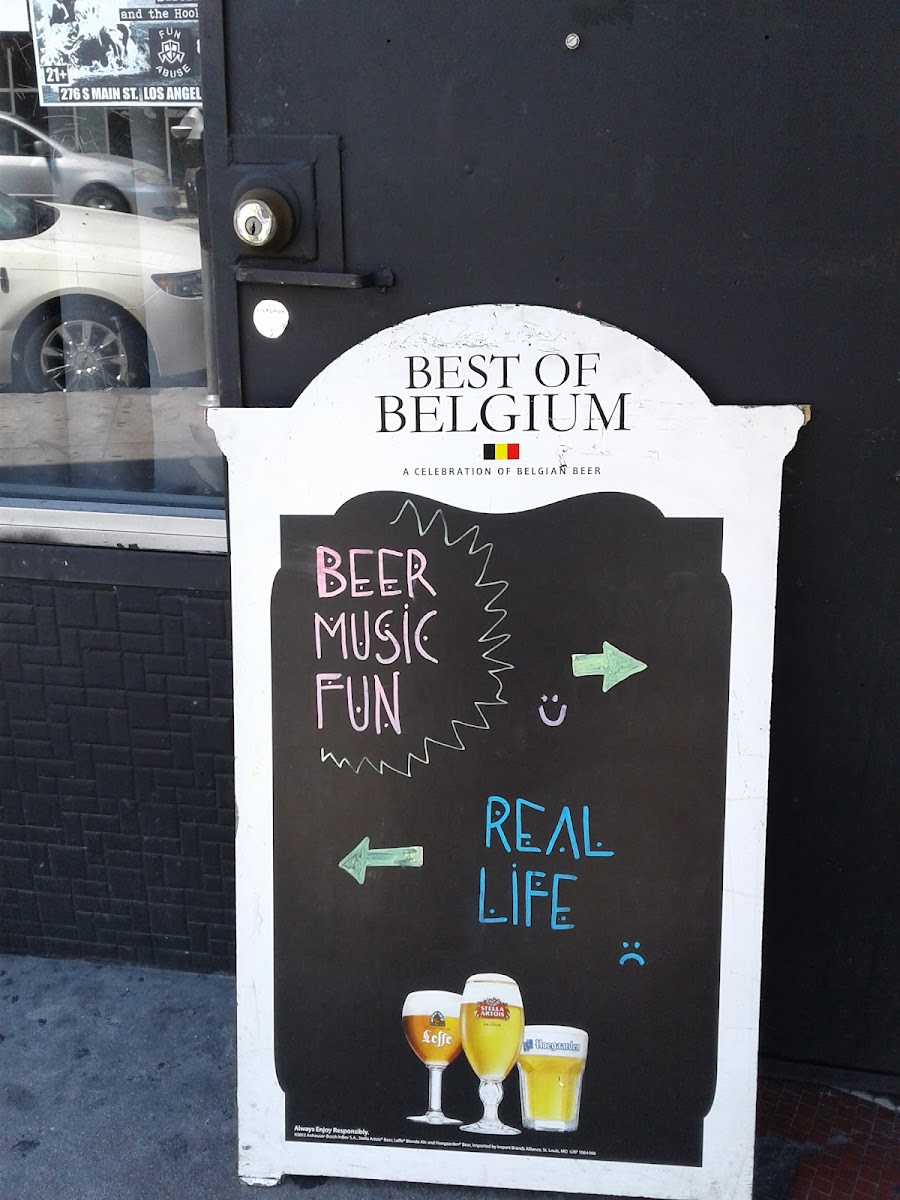 and the Hook
FUN
ABUSE
21+
276 S MAIN ST. LOS ANGEL
BEST OF
BELGIUM
A CELEBRATION OF BELGIAN BEER
BEER
MUSIC
FUN
REAL
LIFE
Leffe
STELLA
ARTOIS
Hoegaarden
Always Enjoy Responsibly.
©2012 Anheuser-Busch InBev S.A., Stella Artois® Beer, Leffe® Blonde Ale and Hoegaarden® Beer, Imported by Import Brands Alliance, St. Louis, MO